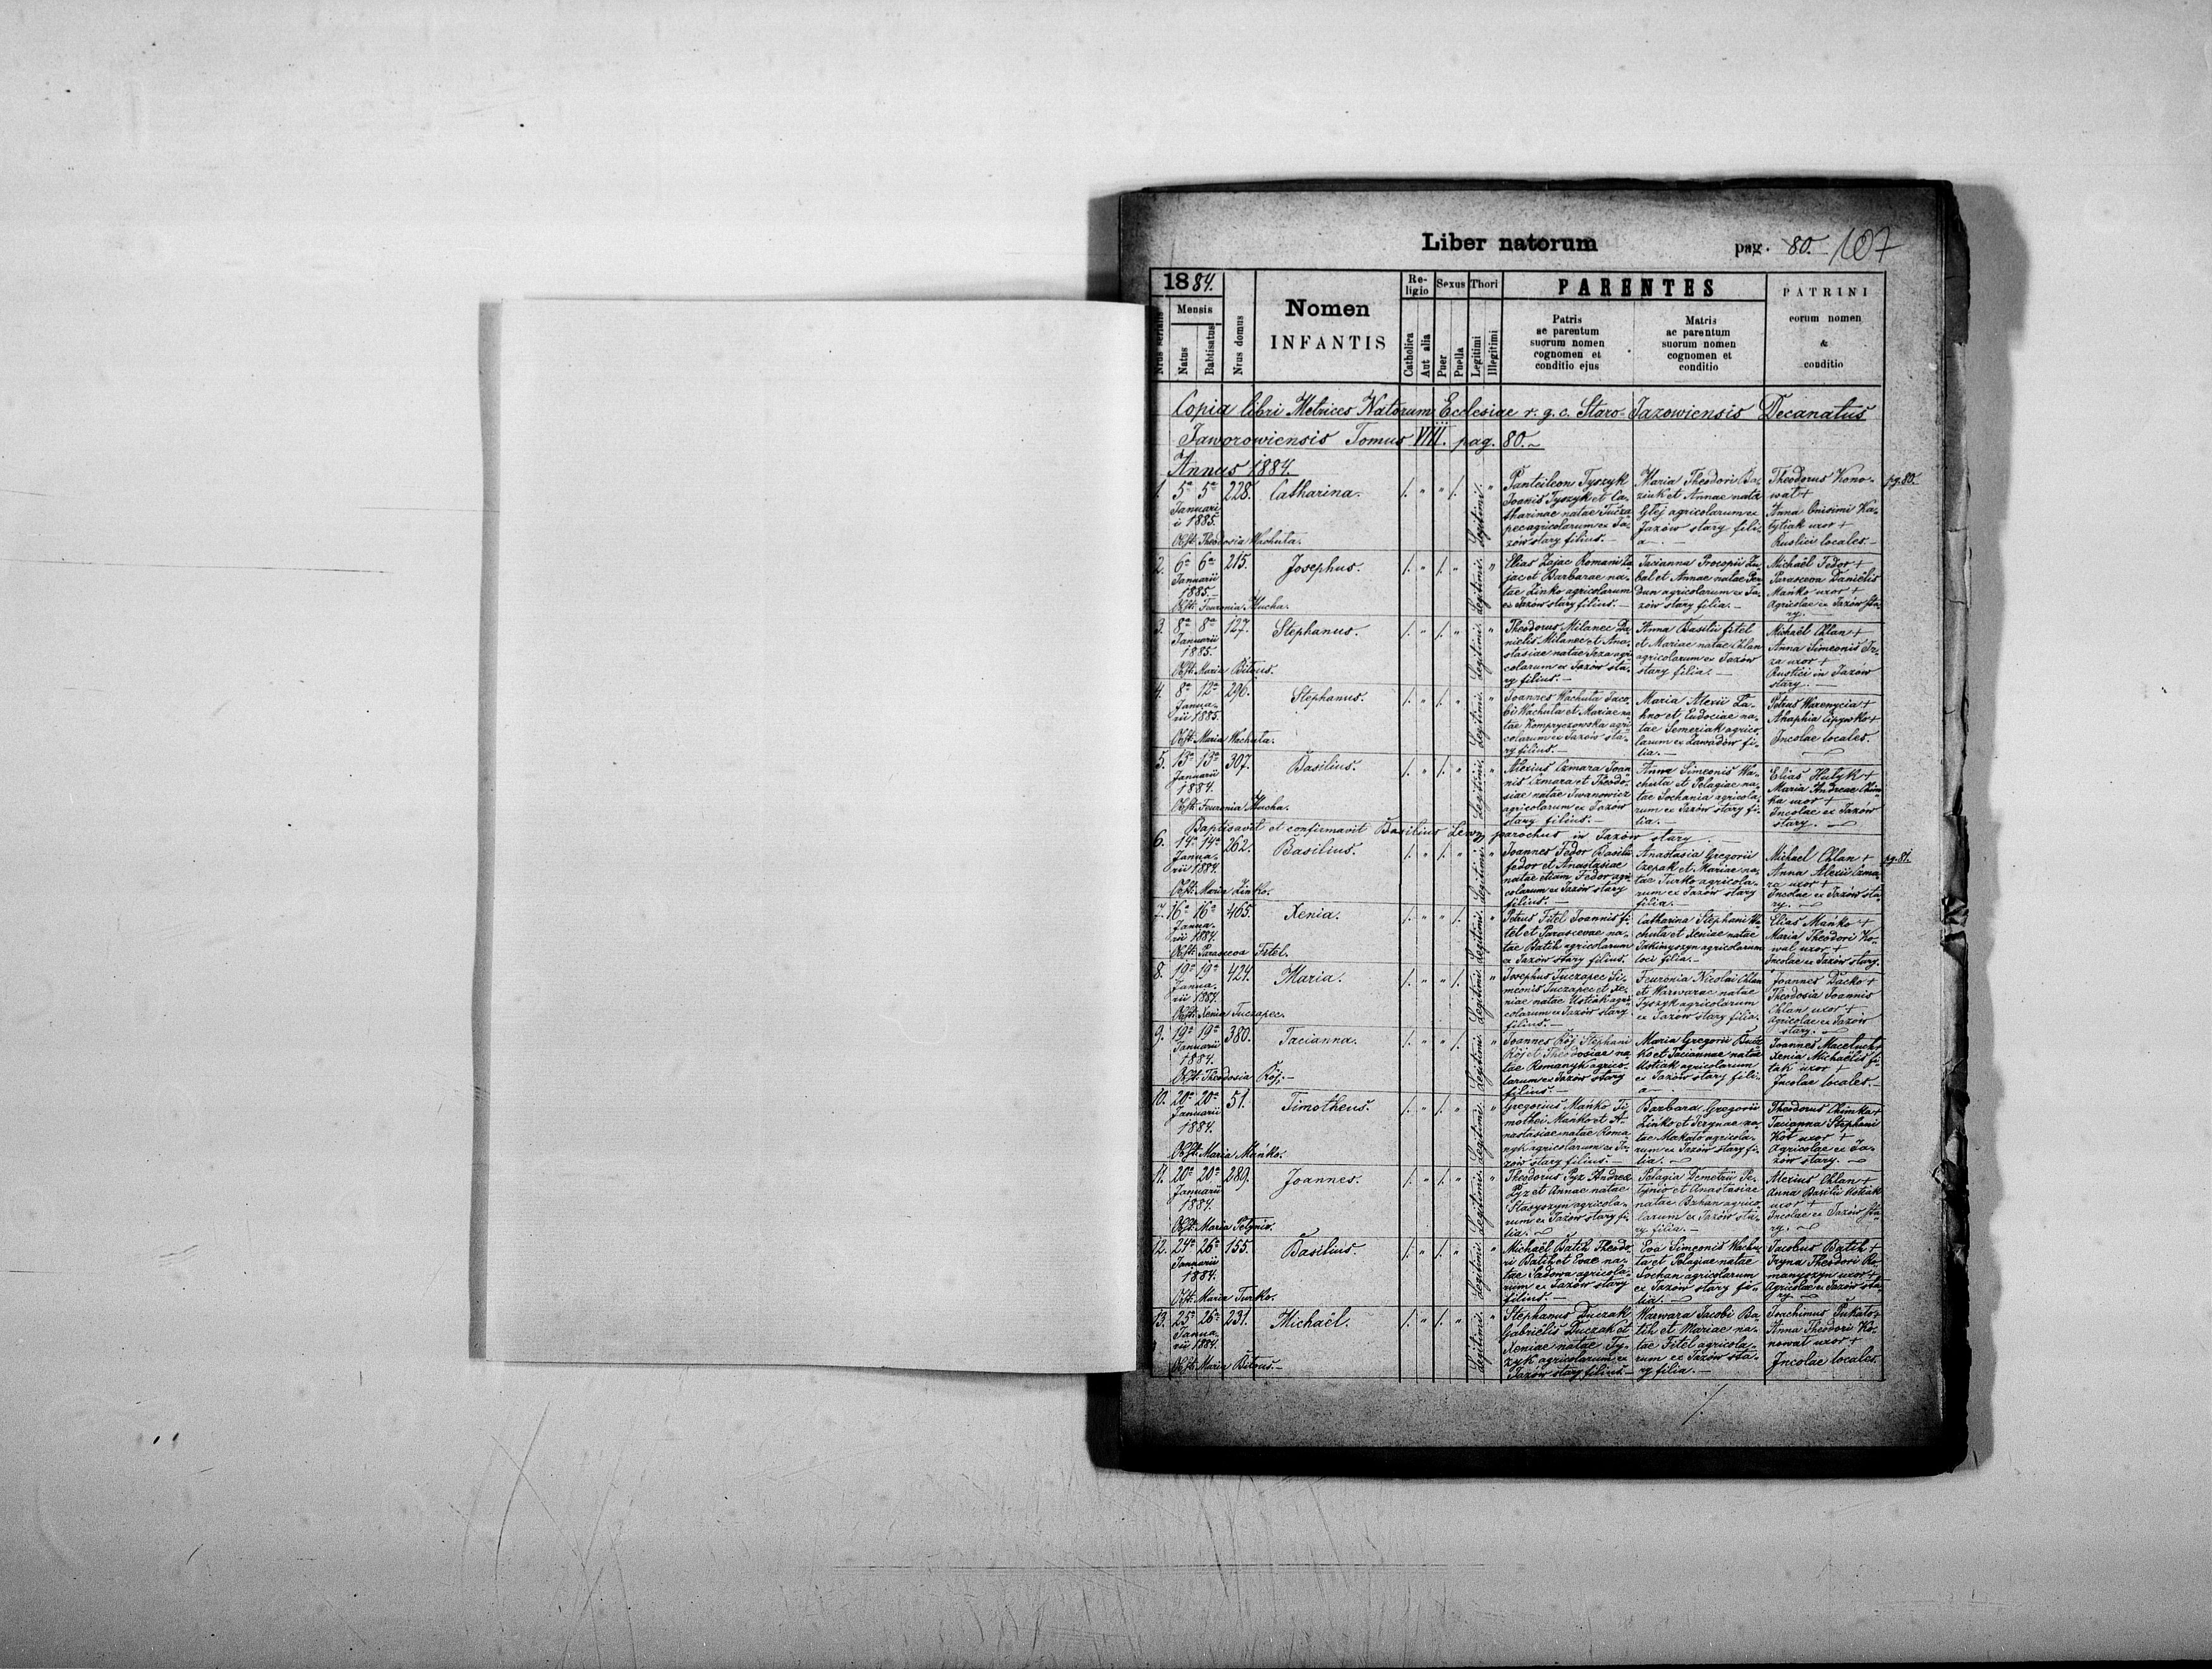 Liber natorum pag. 80. 107
1884.
Nrus serialis
Mensis
Natus
Babtisatus
Nrus domus
Nomen
INFANTIS
Religio
Catholica
Aut alia
Sexus
Puer
Puella
Thori
Legitimi
Illegitimi
PARENTES
Patris
ac parentum
suorum nomen
cognomen et
conditio ejus
Matris
ac parentum
suorum nomen
cognomen et
conditio
PATRINI
eorum nomen
&
conditio
Copia libri Metrices Natorum Ecclesiae r. g. c. Staro-Jazowiensis Decanatus
Jaworowiensis Tomus VIII. pag. 80.
Annus 1884.
1. 5ª 5ª 228. Catharina.
Januari
i 1885.
Obst. Theodosia Wachuta.
Legitimi.
Panteileon Tyszyk
Joanis Tyszyk et Ca-
tharinae natae Tucza
pec agricolarum ex Ja-
zów stary filius.
Maria Theodori
et Annae natae
agricolarum ex
Jazów stary fili-
a.
Theodorus Kono-
wat +
Anna Onisimi Ka-
tytiak uxor +
Rustici locales.
pg. 80.
2. 6ª 6ª 215. Josephus.
Januarii
1885.
Obst. Feuronia Mucha.
Legitimi.
Elias Zajac Romani Za-
jac et Barbarae na-
tae Zinko agricolarum
ex Jazów stary filius.
Tacianna Procopii
et Annae natae
agricolarum ex Ja-
zów stary filia.
Michaël Fedor +
Parasceva Daniëlis
Mańko uxor +
Agricolae ex Jazów sta-
ry.
3. 8ª 8ª 127. Stephanus.
Januarii
1885.
Obst. Maria Bitous.
Legitimi.
Theodorus Milanec Da-
nielis Milanec et Ana-
stasiae natae agri-
colarum ex Jazów sta-
ry filius.
Anna Basilii Fitel
et Mariae natae Chlan
agricolarum ex Jazów
stary filia.
Michaël Chlan +
Anna Simeonis
uxor +
Rustici in Jazów
stary.
4. 8ª 12ª 296. Stephanus.
Janua-
rii 1885.
Obst. Maria Wachuta.
Legitimi.
Joannes Wachuta Jaco-
bi Wachuta et Mariae na-
tae agri-
colarum ex Jazów sta-
ry filius.
Maria Alexii La-
hno et Eudociae na-
tae Semeriak agrico-
larum ex Zawadów fi-
lia.
Petrus Warenycia +
Ahaphia +
Incolae locales.
5. 13ª 13ª 307. Basilius.
Januarii
1884.
Obst. Feuronia Mucha.
Legitimi.
Alexius Czmara Joan-
nis Czmara et Theodo-
siae natae Iwanowicz
agricolarum ex Jazów
stary filius.
Anna Simeonis Wa-
chuta et Pelagiae na-
tae Sochania agricola-
rum ex Jazów stary fi-
lia.
Elias Hulyk +
Maria Andreae Chim-
ka uxor +
Incolae ex Jazów
stary.
Baptisavit et confirmavit Basilius parochus in Jazów stary
6. 14ª 14ª 262. Basilius.
Janua-
rii 1884.
Obst. Maria Zinko.
Legitimi.
Joannes Fedor Basilii
Fedor et Anastasiae
natae etiam Fedor agri-
colarum ex Jazów stary
filius.
Anastasia Gregorii
Czepak et Mariae na-
tae Turko agricola-
rum ex Jazów stary
filia.
Michael Chlan +
Anna Alexii Czma-
ra uxor +
Incolae ex Jazów sta-
ry.
pg. 81.
7. 16ª 16ª 465. Xenia.
Janua-
rii 1884.
Obst. Parasceva Fitel.
Legitimi.
Petrus Fitel Joannis Fi-
tel et Parascevae na-
tae Batih agricolarum
ex Jazów stary filius.
Catharina Stephani Wa-
chuta et Xeniae natae
Jakimyszyn agricolarum
loci filia.
Elias Mańko +
Maria Theodori Ko-
wal uxor +
Incolae ex Jazów stary.
8. 19ª 19ª 424. Maria.
Janua-
rii 1884.
Obst. Xenia Tuczapec.
Legitimi.
Josephus Tuczapec Si-
meonis Tuczapec et Xe-
niae natae Ustiak agri-
colarum ex Jazów stary
filius.
Feuronia Nicolai Chlan
et Warwarae natae
Tyszyk agricolarum
ex Jazów stary filia.
Joannes Dacko +
Theodosia Joannis
Chlan uxor +
Agricolae ex Jazów
stary.
9. 19ª 19ª 380. Tacianna.
Januarii
1884.
Obst. Theodosia Röj.
Legitimi.
Joannes Röj Stephani
Röj et Theodosiae na-
tae Romanyk agrico-
larum ex Jazów stary
filius.
Maria Gregorii
et Taciannae natae
Ustiak agricolarum
ex Jazów stary fili-
a.
Joannes Maceluch +
Xenia Michaëlis Fi-
tak uxor +
Incolae locales.
10. 20ª 20ª 51. Timotheus.
Januarii
1884.
Obst. Maria Mańko.
Legitimi.
Gregorius Mańko Ti-
mothei Mańko et A-
nastasiae natae Roma-
nyk agricolarum ex Ja-
zów stary filius.
Barbara Gregorii
Zinko et Irynae na-
tae Makato agricola-
rum ex Jazów stary fi-
lia.
Theodorus Chimka +
Tacianna Stephani
Kot uxor +
Agricolae ex Ja-
zów stary.
11. 20ª 20ª 289. Joannes.
Januarii
1884.
Obst. Maria Petynio.
Legitimi.
Theodorus Pyz Andreae
Pyz et Annae natae
Stasyszyn agricola-
rum ex Jazów stary fi-
lia.
Pelagia Demetrii Pe-
tynio et Anastasiae
natae Bzhan agrico-
larum ex Jazów sta-
ry filia.
Alexius Chlan +
Anna Basilii Ustiak
uxor +
Incolae ex Jazów sta-
ry.
12. 24ª 26ª 155. Basilius.
Januarii
1884.
Obst. Maria Turko.
Legitimi.
Michaël Batih Theodo-
ri Batih et Evae na-
tae Sadowa agricola-
rum ex Jazów stary
filius.
Eva Simeonis Wachu-
ta et Pelagiae natae
Sochan agricolarum
ex Jazów stary fi-
lia.
Jacobus Batih +
Iryna Theodori Ro-
manyszyn uxor +
Agricolae ex Jazów sta-
ry.
13. 25ª 26ª 231. Michaël.
Janua-
rii 1884.
Obst. Maria Bitous.
Legitimi.
Stephanus Duczak
Gabriëlis Duczak et
Xeniae natae Ty-
zyk agricolarum ex
Jazów stary filius.
Warwara Jacobi Ba-
tih et Mariae na-
tae Fitel agricola-
rum ex Jazów sta-
ry filia.
Joachimus Pukato
Anna Theodori Ko-
nowat uxor +
Incolae locales.